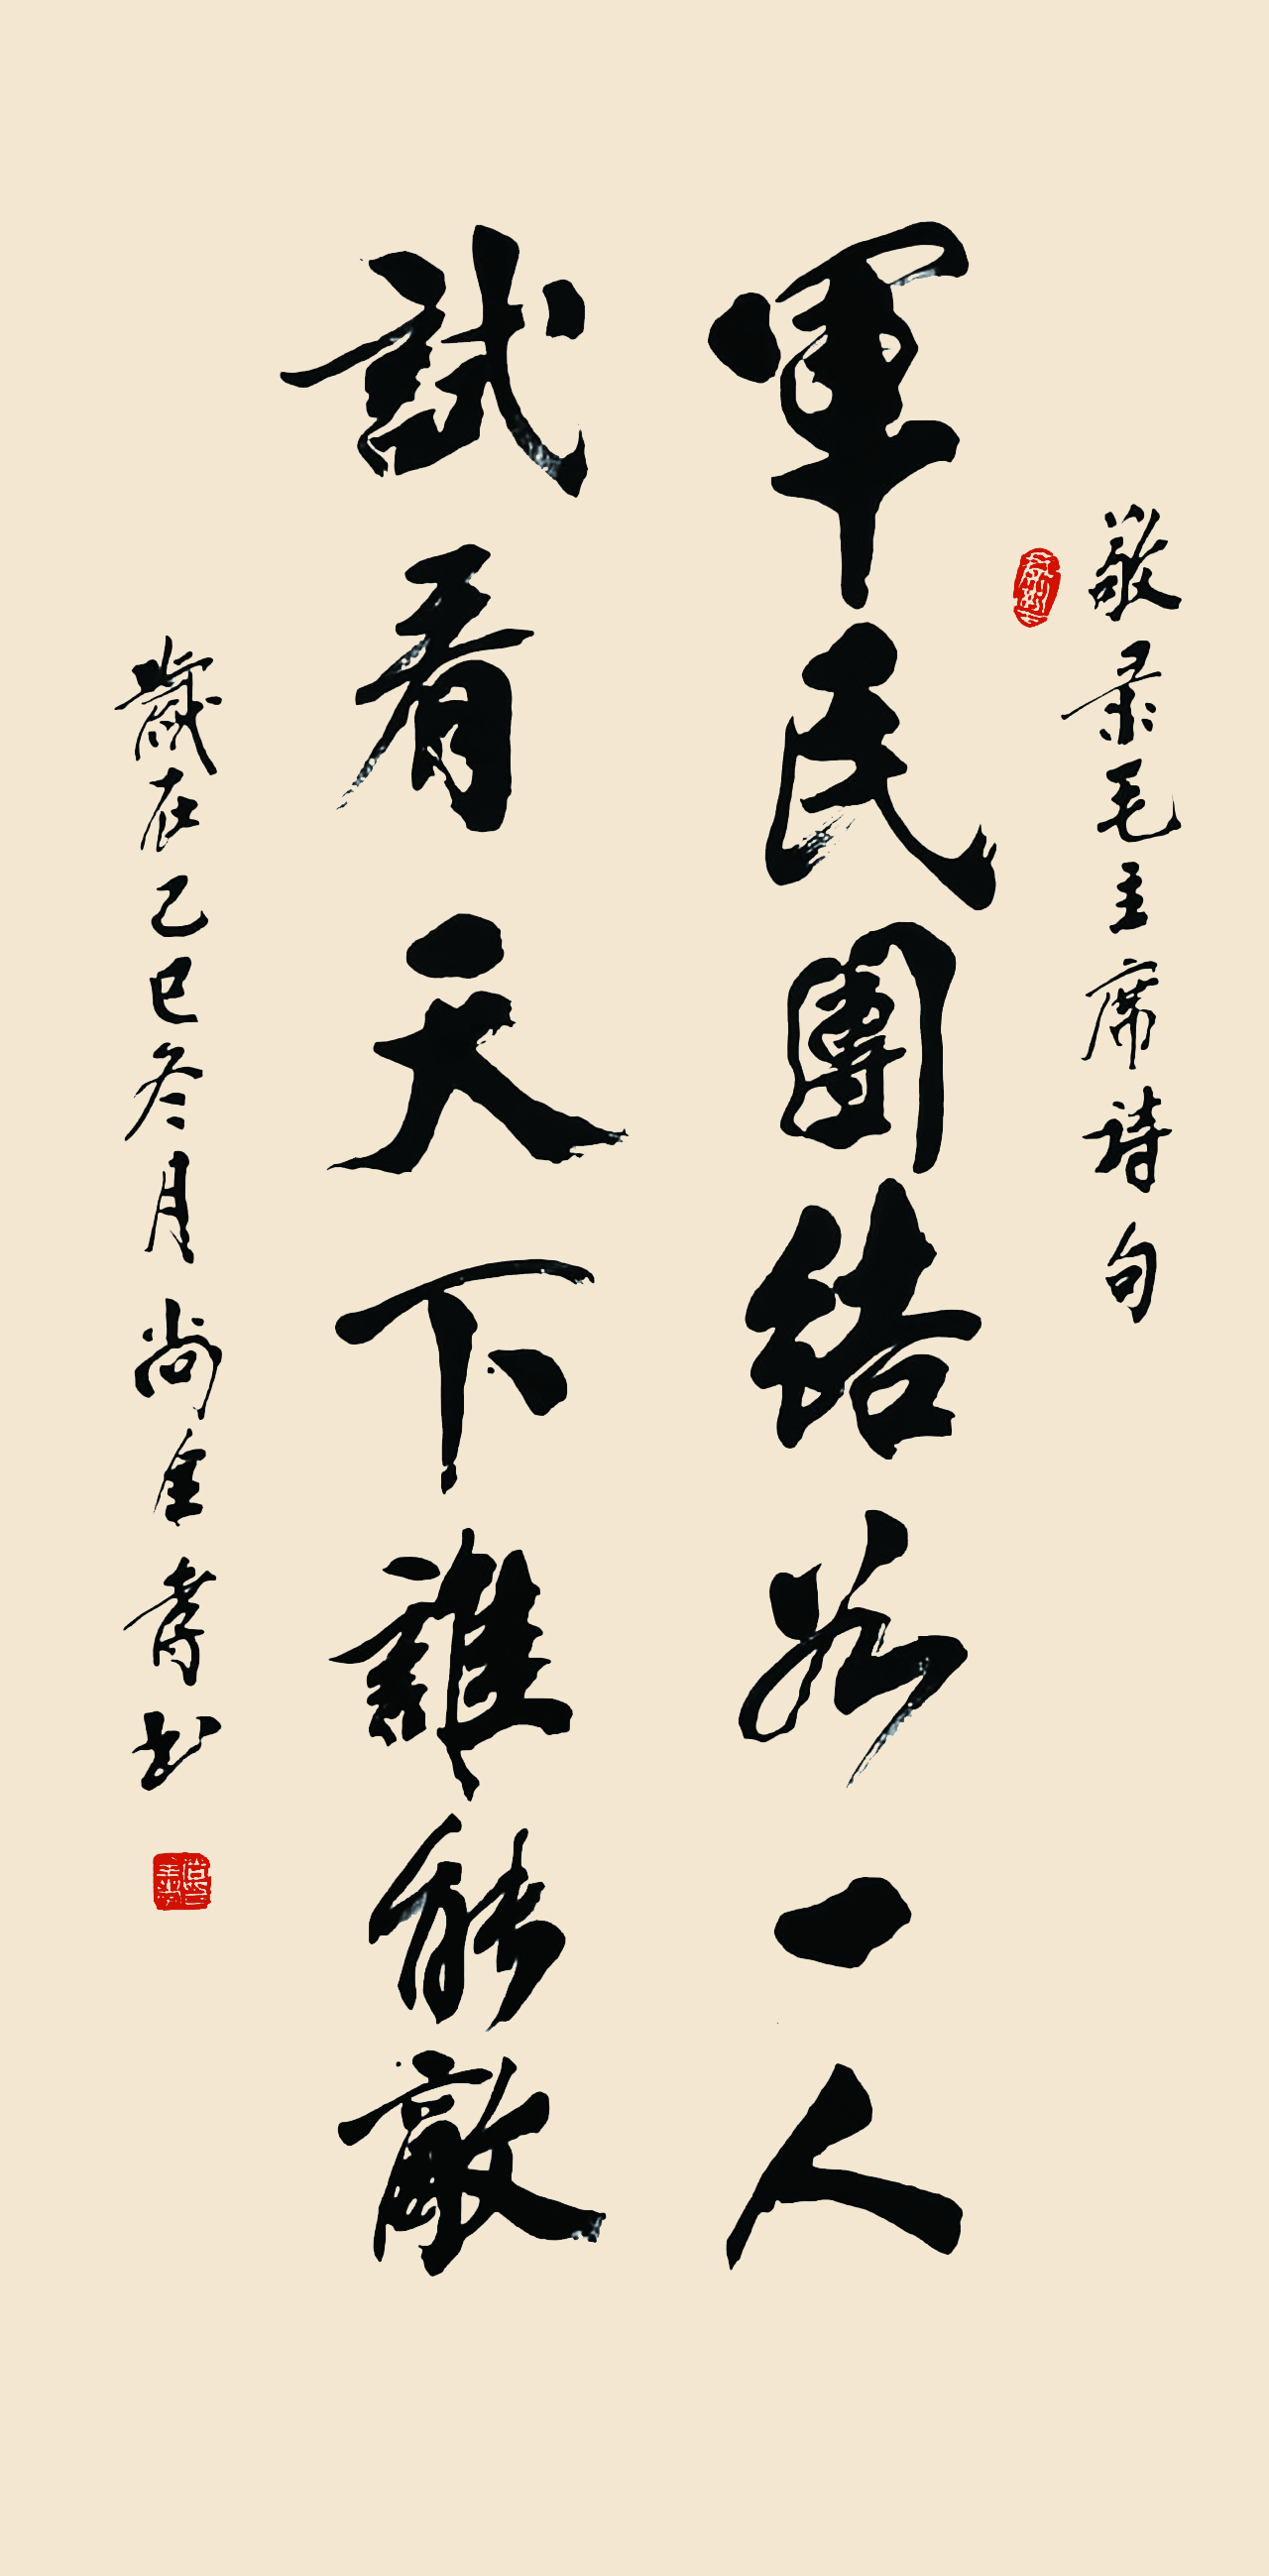 敬录毛主席诗句
軍民團结如一人
試看天下誰能敵
歲在乙巳冬月尚金孝书